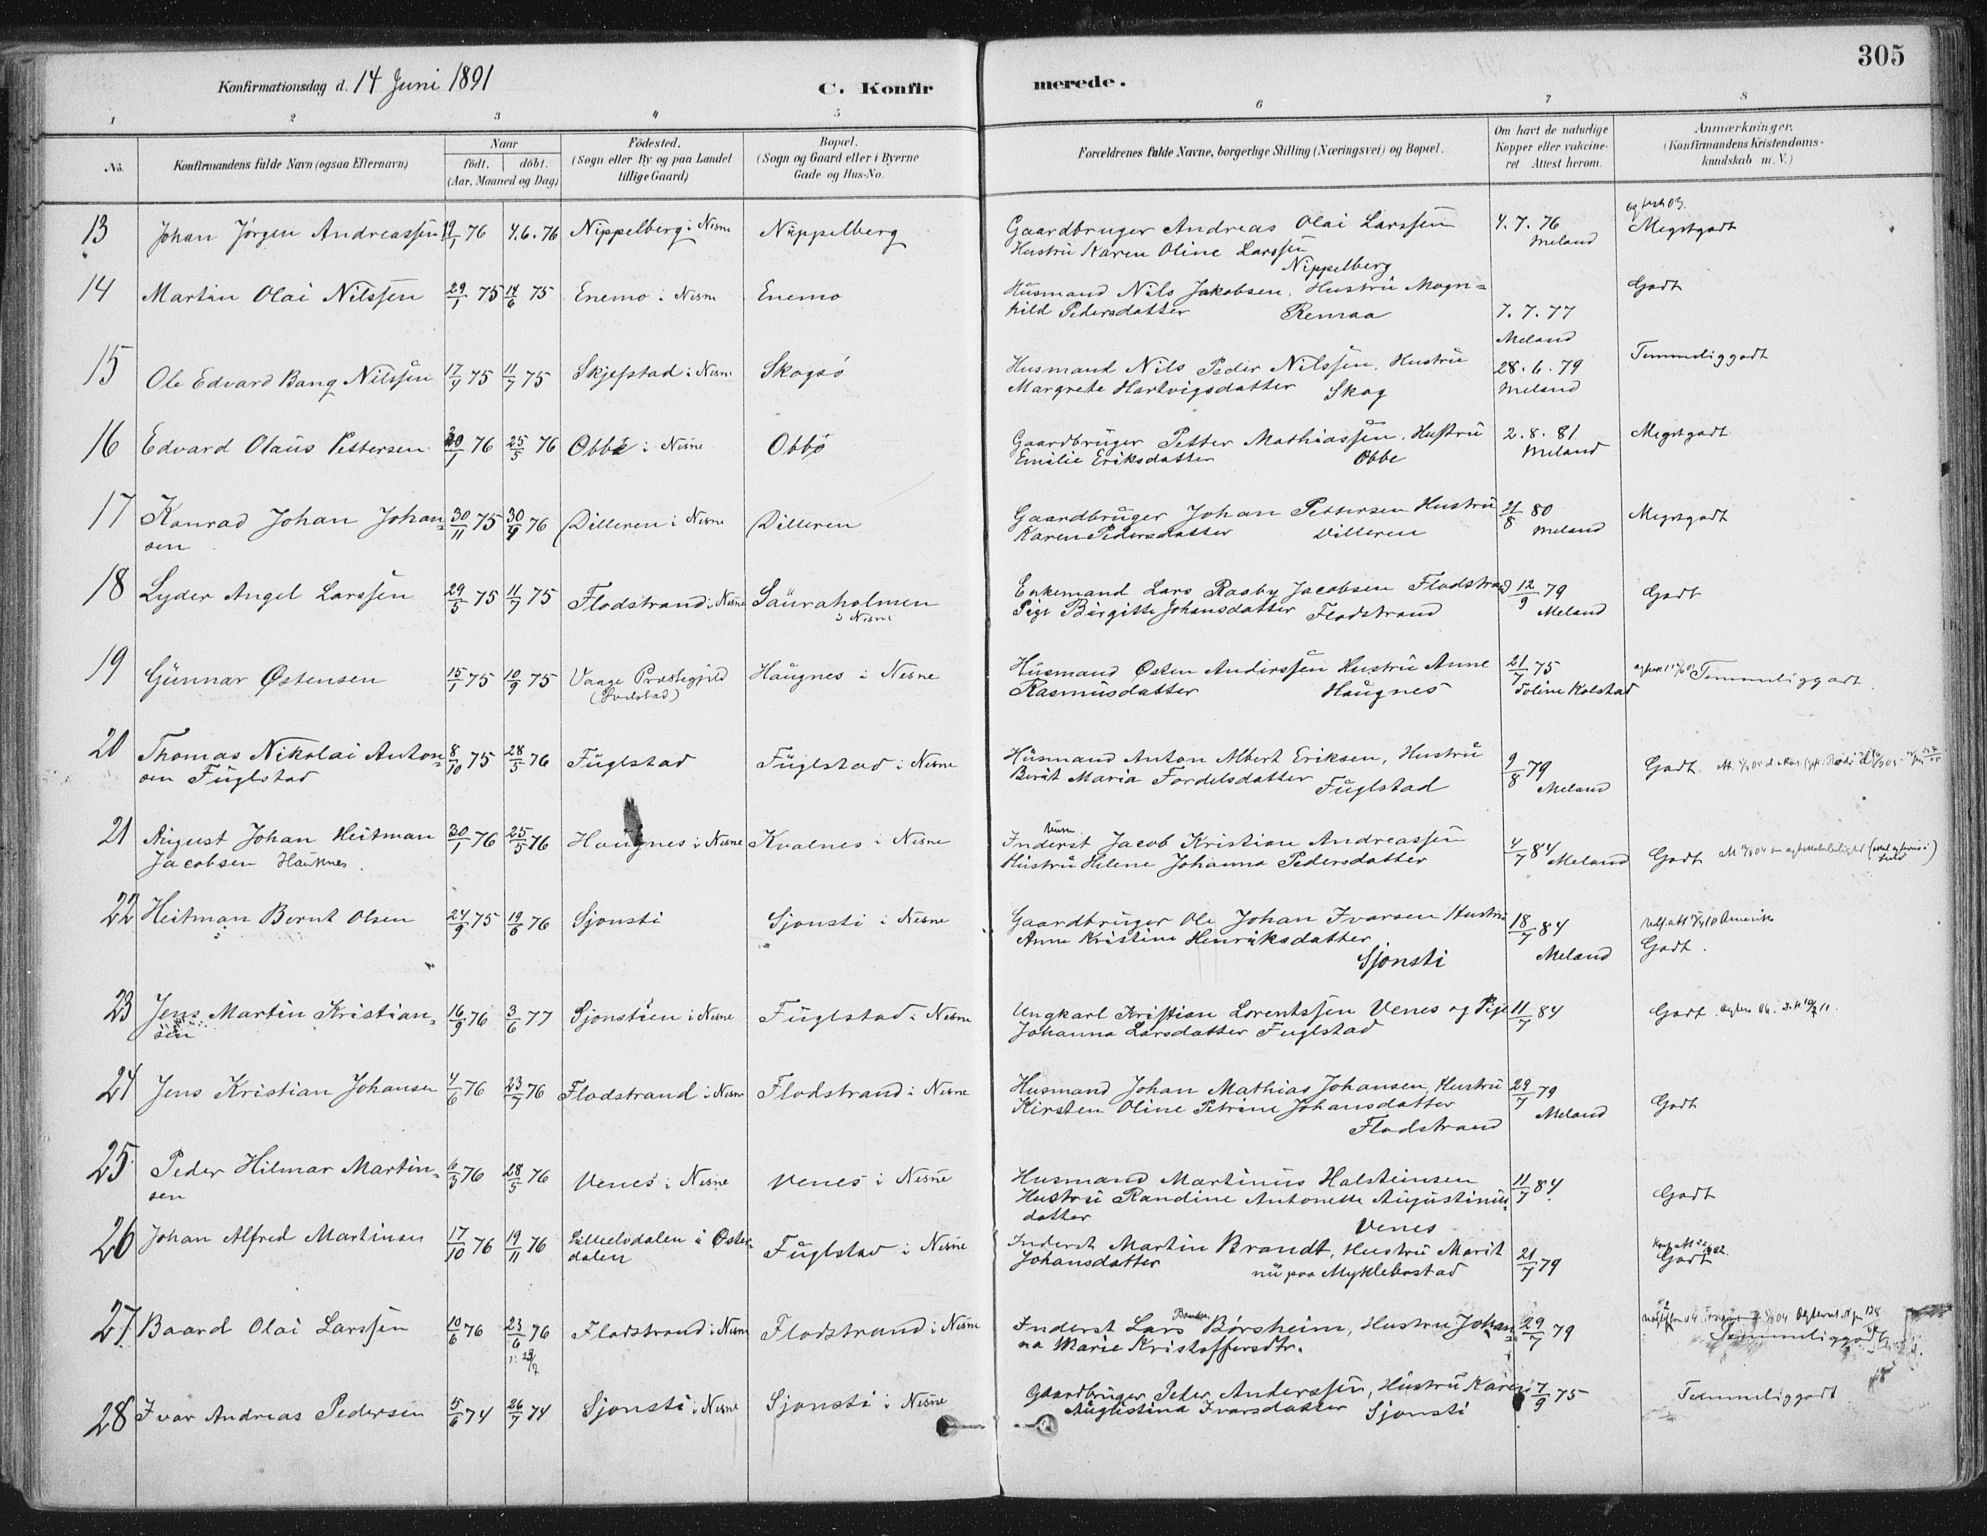 305
Konfirmationsdag d. 14 Juni 1891 C. Konfirmerede.
1 2 3 4 5 6 7 8
No. Konfirmandens fulde Navn (ogsaa Efternavn) Naar født. døbt. (Aar, Maaned og Dag) Fødested. (Sogn eller By og paa Landet tillige Gaard) Bopæl. (Sogn og Gaard eller i Byerne Gade og Hus-No. Forældrenes fulde Navne, borgerlige Stilling (Næringsvei) og Bopæl. Om havt de naturlige Kopper eller vakcineret Attest herom. Anmærkninger. (Konfirmandens Kristendomskundskab m. V.)
13 Johan Jørgen Andreassen 19/1 76 4.6.76 Nippelberg i Nesne Nippelberg Gaardbruger Andreas Olai Larssen 4.7.76 Meland Megetgodt
Hustru Karen Oline Larssen
Nippelberg
14 Martin Olai Nilssen 29/1 75 14/6 75 Enemo i Nesne Enemo Husmand Nils Jakobsen. Hustru Magn= 7.7.77 Meland Godt
hild Pedersdatter Remaa
15 Ole Edvard Bang Nilssen 17/9 75 11/7 75 Skjefstad i Nesne Skogsø Husmand Nils Peder Nilssen. Hustru 28.6.79 Meland Temmeliggodt
Margrete Hartvigsdatter Skog
16 Edvard Olaus Pettersen 20/1 76 25/5 76 Obbe i Nesne Obbø Gaardbruger Petter Mathiassen. Hustru 2.8.81 Meland Megetgodt
Emilie Eriksdatter Obbe
17 Konrad Johan Johan= 30/11 75 30/9 76 Dilleren i Nesne Dilleren Gaardbruger Johan Pettersen Hustru 21/8 80 Meland Megetgodt
sen Karen Pedersdatter Dilleren
18 Lyder Angel Larssen 29/5 75 11/7 75 Flodstrand i Nesne Sauraholmen i Nesne Enkemand Lars Rasby Jacobsen Flodstrand 12/9 79 Meland Godt
Pige Birgitte Johansdatter Flodstrand
19 Gunnar Østensen 15/1 75 10/9 75 Vaage Præstegjeld Haugnes i Nesne Husmand Østen Anderssen Hustru Anne 21/7 75 Toline Kolstad Temmeliggodt
Rasmusdatter Haugnes
20 Thomas Nikolai Anton= 8/10 75 28/5 76 Fuglstad Fuglstad i Nesne Husmand Anton Albert Eriksen, Hustru 9/8 79 Meland Godt.
sen Fuglstad Berit Maria Fordelsdatter Fuglstad
21 August Johan Heitman 30/1 76 25/5 76 Haugnes i Nesne Kvalnes i Nesne Inderst Jacob Kristian Andreassen 4/7 84 Meland Godt
Jacobsen Hauknes. Hustru Helene Johanna Pedersdatter
22 Heitman Bernt Olsen 24/9 75 19/6 76 Sjonsti Sjonsti i Nesne Gaardbruger Ole Johan Ivarsen Hustru 18/7 84 Meland Godt.
Anne Kristine Henriksdatter
Sjonsti
23 Jens Martin Kristian= 16/9 76 3/6 77 Sjonstien i Nesne Fuglstad i Nesne Ungkarl Kristian Lorentssen Venes og Pige 11/7 84 Godt
sen Johanna Larsdatter Fuglstad
24 Jens Kristian Johansen 4/6 76 23/7 76 Flodstrand i Nesne Flodstrand i Nesne Husmand Johan Mathias Johansen, Hustru 29/7 79 Meland Godt
Kirsten Oline Petrine Johansdatter
Flodstrand
25 Peder Hilmar Martin= 6/3 76 28/5 76 Venes i Nesne Venes i Nesne Husmand Martinus Halsteinsen 11/7 84 Godt
sen Hustru Randine Antonette Augustinus=
datter Venes
26 Johan Alfred Martinsen 17/10 76 19/11 76 Lillelvdalen i Øster= Fuglstad i Nesne Inderst Martin Brandt, Hustru Marit 21/7 79 Godt
dalen Johansdatter nu paa Myklebostad
27 Baard Olai Larssen 10/6 76 23/6 76 Flodstrand i Nesne Flodstrand i Nesne Inderst Lars Børsheim, Hustru Johan= 29/7 79 Temmeliggodt
na Marie Kristoffersdtr.
28 Ivar Andreas Pedersen 5/6 74 26/7 74 Sjonsti i Nesne Sjonsti i Nesne Gaardbruger Peder Anderssen, Hustru Karen 7/9 75 Temmeliggodt
Augustina Ivarsdatter Sjonsti